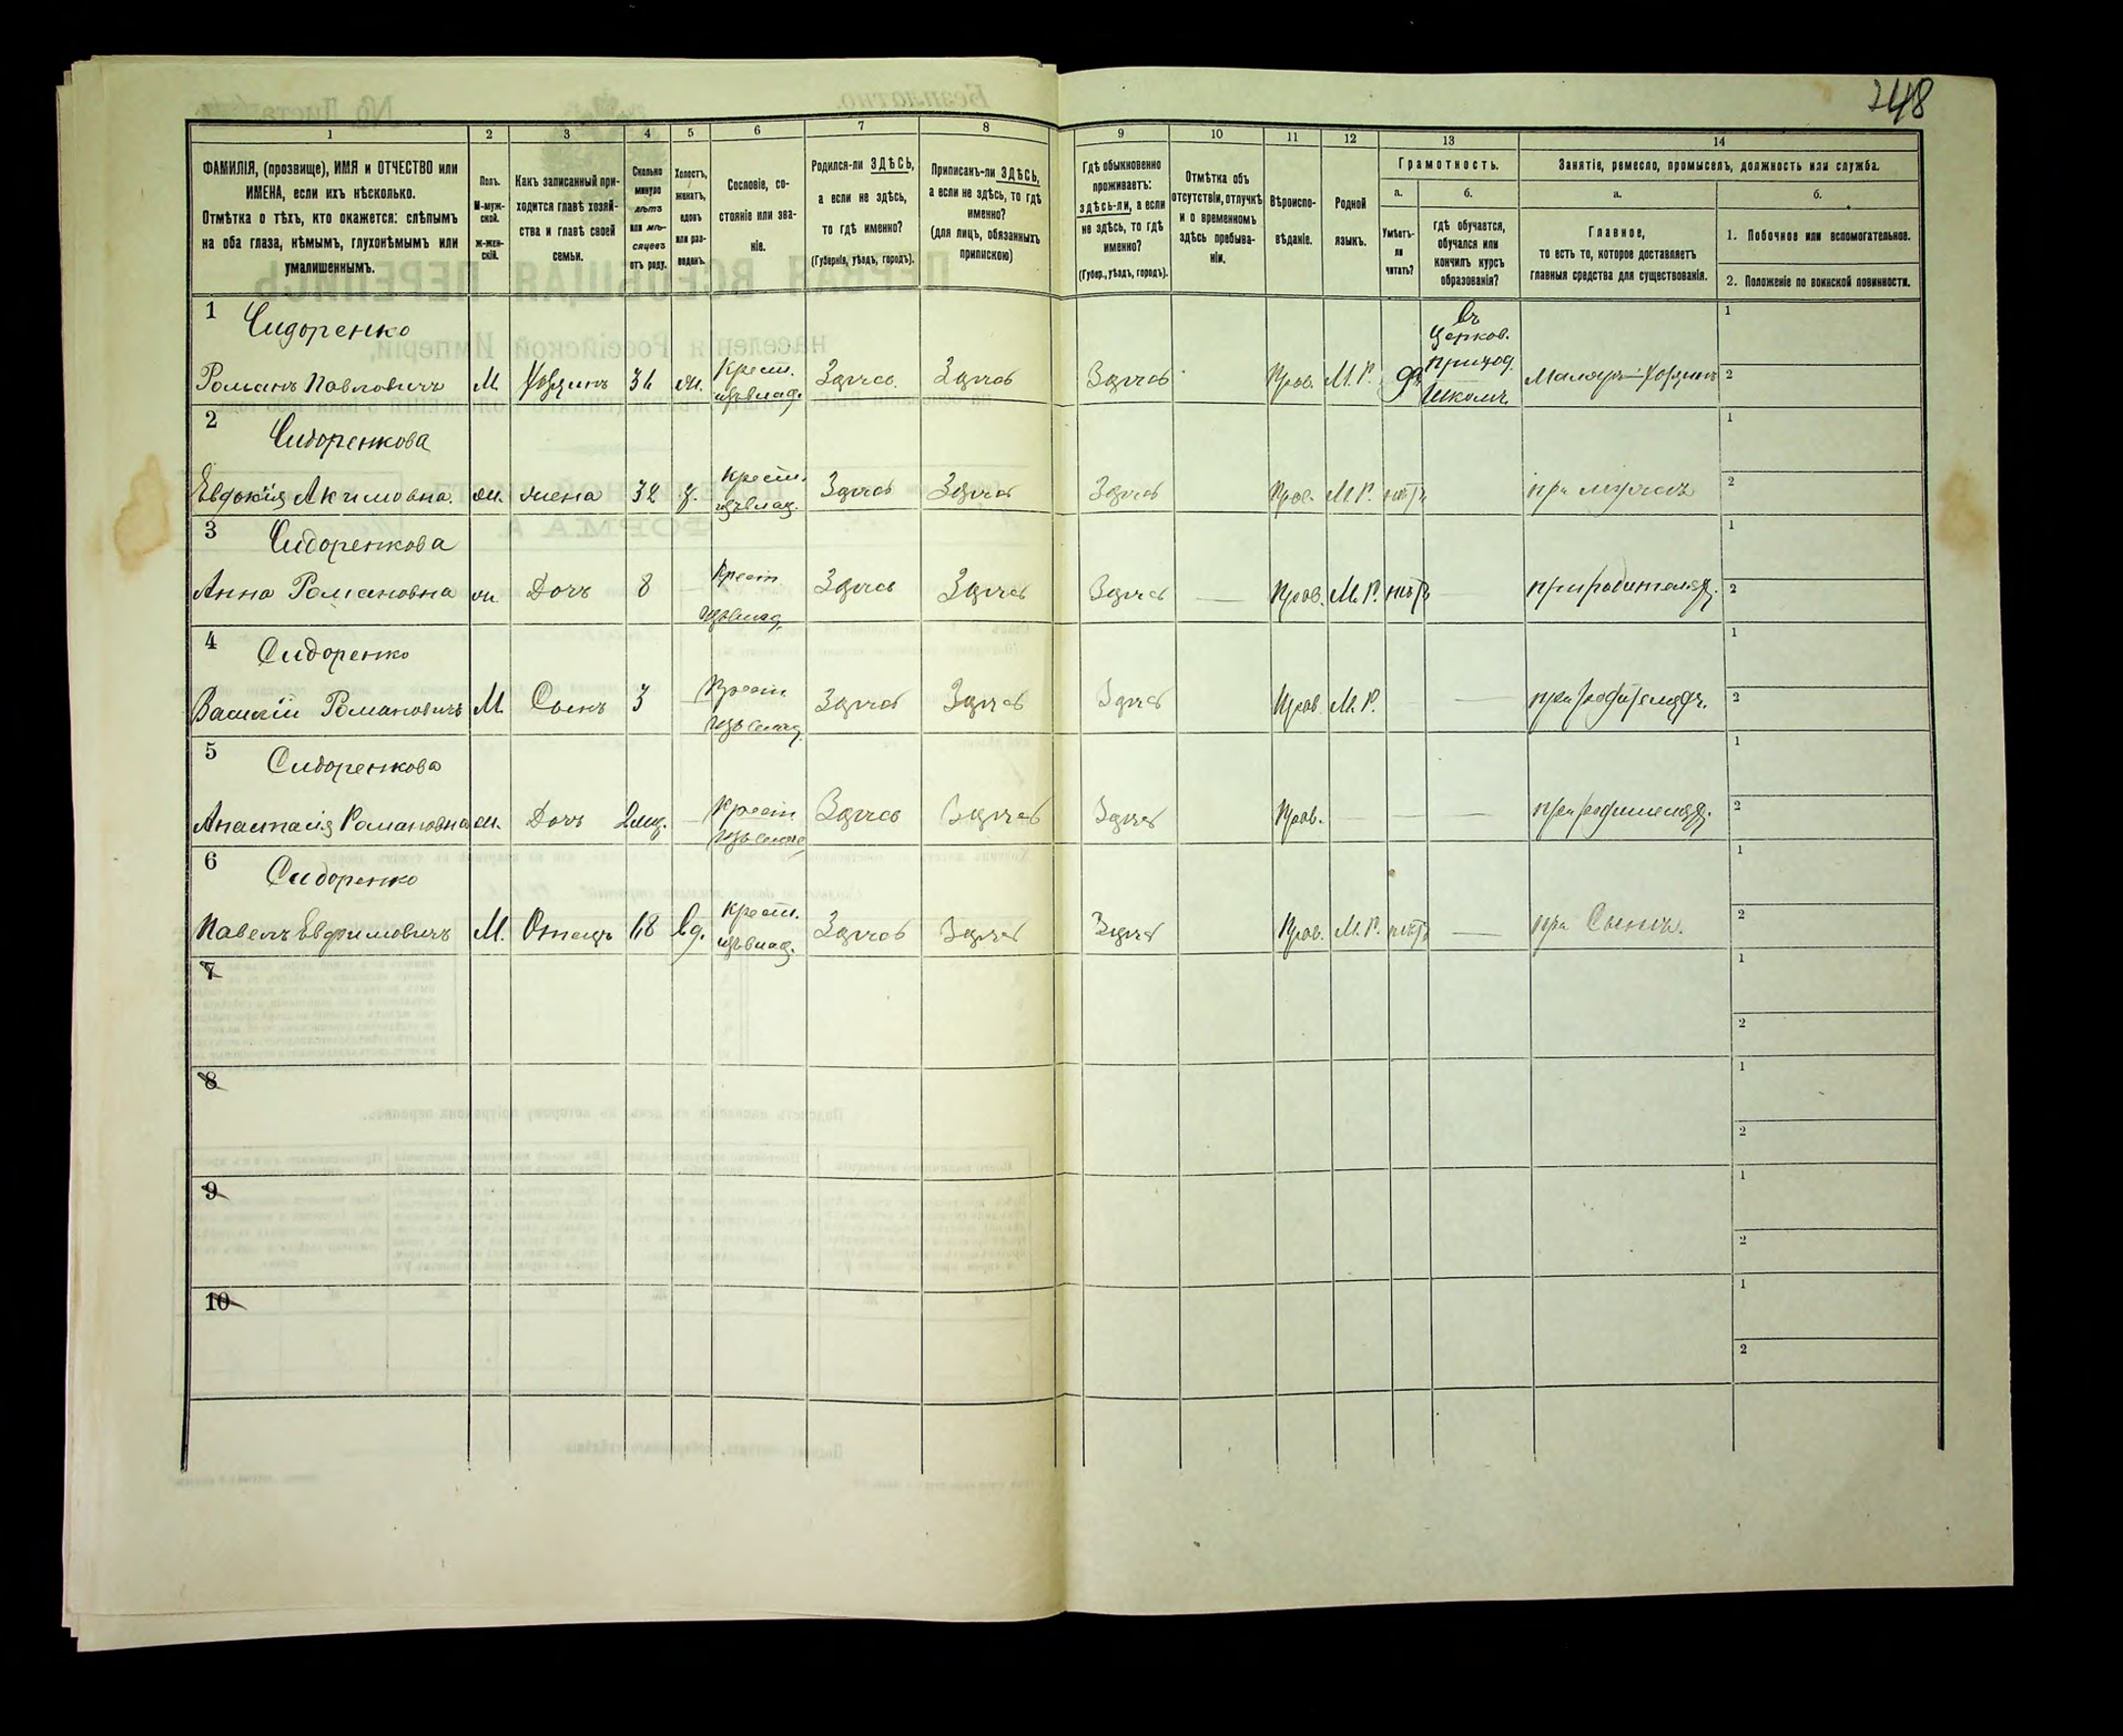 248
1 2 3 4 5 6 7 8 9 10 11 12 13 14
ФАМИЛІЯ, (прозвище), ИМЯ и ОТЧЕСТВО или
ИМЕНА, если ихъ нѣсколько.
Отмѣтка о тѣхъ, кто окажется: слѣпымъ
на оба глаза, нѣмымъ, глухонѣмымъ или
умалишеннымъ.
Полъ.
М-муж-
ской.
Ж-жен-
скій.
Какъ записанный при-
ходится главѣ хозяй-
ства и главѣ своей
семьи.
Сколько
минуло
лѣтъ
или мѣ-
сяцевъ
отъ роду.
Холостъ,
женатъ,
вдовъ
или раз-
веденъ.
Сословіе, со-
стояніе или зва-
ніе.
Родился-ли ЗДѢСЬ,
а если не здѣсь,
то гдѣ именно?
(Губернія, уѣздъ, городъ).
Приписанъ-ли ЗДѢСЬ,
а если не здѣсь, то гдѣ
именно?
(для лицъ, обязанныхъ
припискою)
Гдѣ обыкновенно
проживаетъ:
здѣсь-ли, а если
не здѣсь, то гдѣ
именно?
(Губер., уѣздъ, городъ).
Отмѣтка объ
отсутствіи, отлучкѣ
и о временномъ
здѣсь пребыва-
ніи.
Вѣроиспо-
вѣданіе.
Родной
языкъ.
Грамотность.
а.
Умѣетъ-
ли
читать?
б.
гдѣ обучается,
обучался или
кончилъ курсъ
образованія?
Занятіе, ремесло, промыселъ, должность или служба.
а.
Главное,
то есть то, которое доставляетъ
главныя средства для существованія.
б.
1. Побочное или вспомогательное.
2. Положеніе по воинской повинности.
1 Сидоренко
Романъ Павловичъ М. Хозяинъ 31 ж. Крест. изъ влад. Здѣсь Здѣсь Здѣсь Прав. М. Р. да Въ Церков. Приход. Школѣ Маляръ-Хозяинъ
1
2
2 Сидоренкова
Евдокія Акимовна ж. жена 32 з. Крест. изъ влад. Здѣсь Здѣсь Здѣсь Прав. М. Р. нѣтъ при мужѣ
1
2
3 Сидоренкова
Анна Романовна ж. Дочь 8 — Крест. изъ влад. Здѣсь Здѣсь Здѣсь — Прав. М. Р. нѣтъ — при родителях.
1
2
4 Сидоренко
Василій Романовичъ М Сынъ 3 — Крест. изъ влад. Здѣсь Здѣсь Здѣсь Прав. М. Р. — при родителях.
1
2
5 Сидоренкова
Анастасія Романовна ж. Дочь 2 мц. — Крест. изъ влад. Здѣсь Здѣсь Здѣсь Прав. — — при родителях.
1
2
6 Сидоренко
Павелъ Евфимовичъ М. Отецъ 68 вд. Крест. изъ влад. Здѣсь Здѣсь Здѣсь Прав. М. Р. нѣтъ — при Сынѣ.
1
2
7
1
2
8
1
2
9
1
2
10
1
2